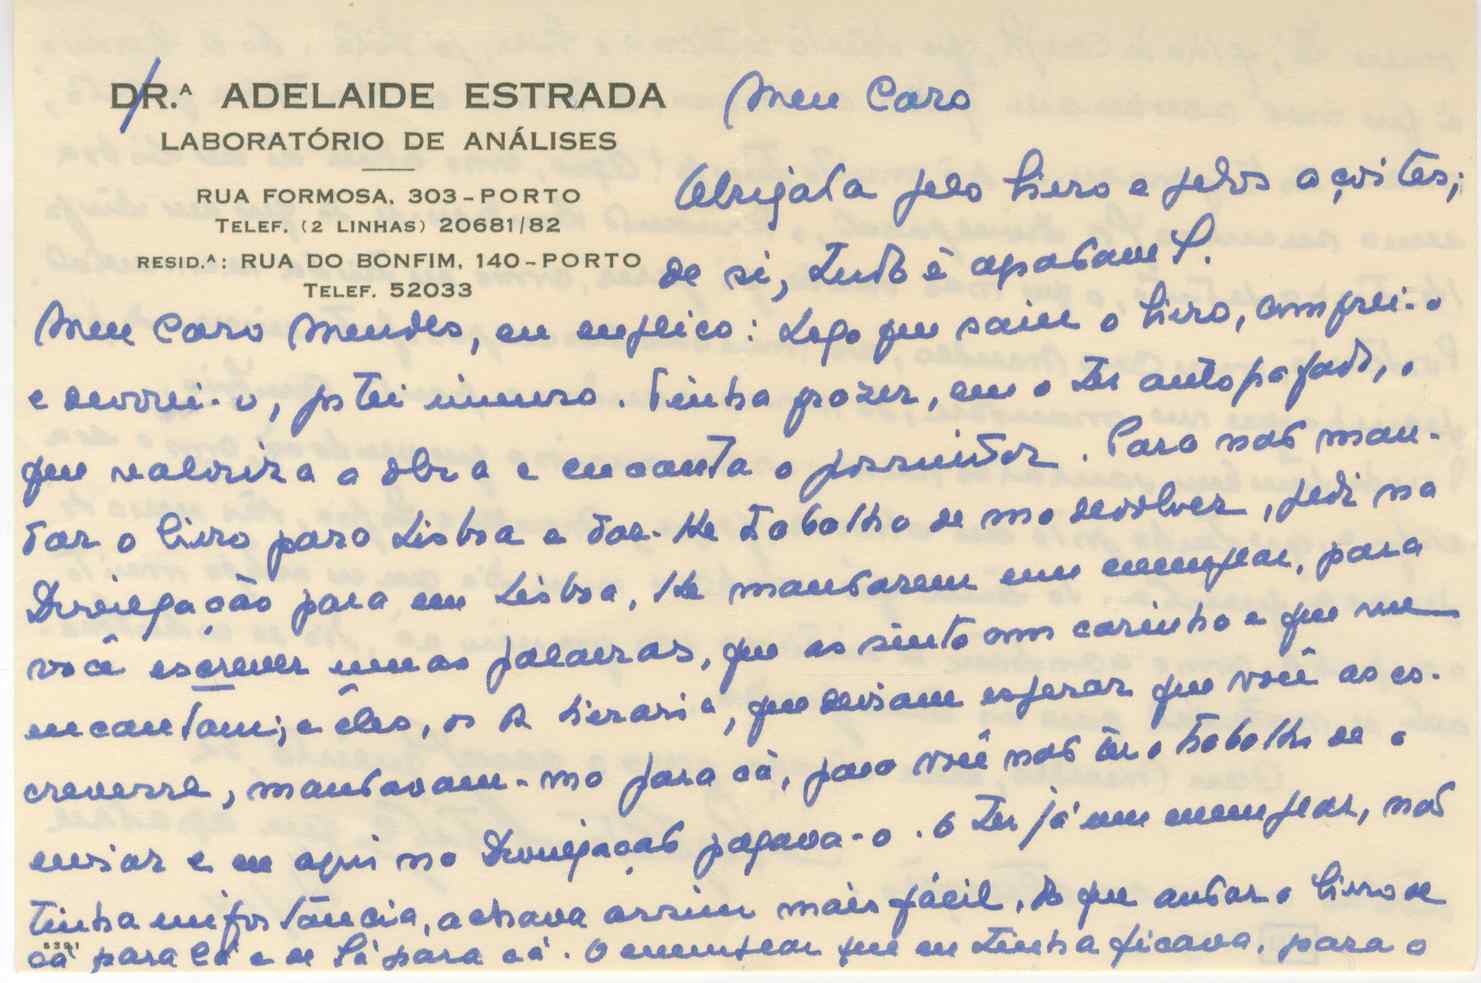 DR.ᴬ ADELAIDE ESTRADA
LABORATÓRIO DE ANÁLISES
RUA FORMOSA, 303 - PORTO
TELEF. (2 LINHAS) 20681/82
RESID.ᴬ: RUA DO BONFIM, 140 - PORTO
TELEF. 52033
Meu Caro
Obrigada pelo livro e pelos açoites;
de si, tudo é agradavel.
Meu Caro Mendes, eu explico: Logo que saiu o livro, comprei-o
e devorei-o, gostei imenso. Tinha prazer, em o ter autografado, o
que valoriza a obra e encanta o possuidor. Para não man-
dar o livro para Lisboa e dar-lhe trabalho de mo devolver, pedi na
Divulgação para em Lisboa, lhe mandarem um exemplar, para
você escrever umas palavras, que as sinto com carinho e que me
encantam; e eles, os da livraria, que deviam esperar que você as es-
crevesse, mandavam-mo para cá, para você não ter o trabalho de o
enviar e eu aqui na Divulgação pagava-o. O ter já um exemplar, não
tinha importância, achava assim mais fácil, do que andar o livro de
cá para lá e de lá para cá. O exemplar que eu tinha ficava, para o